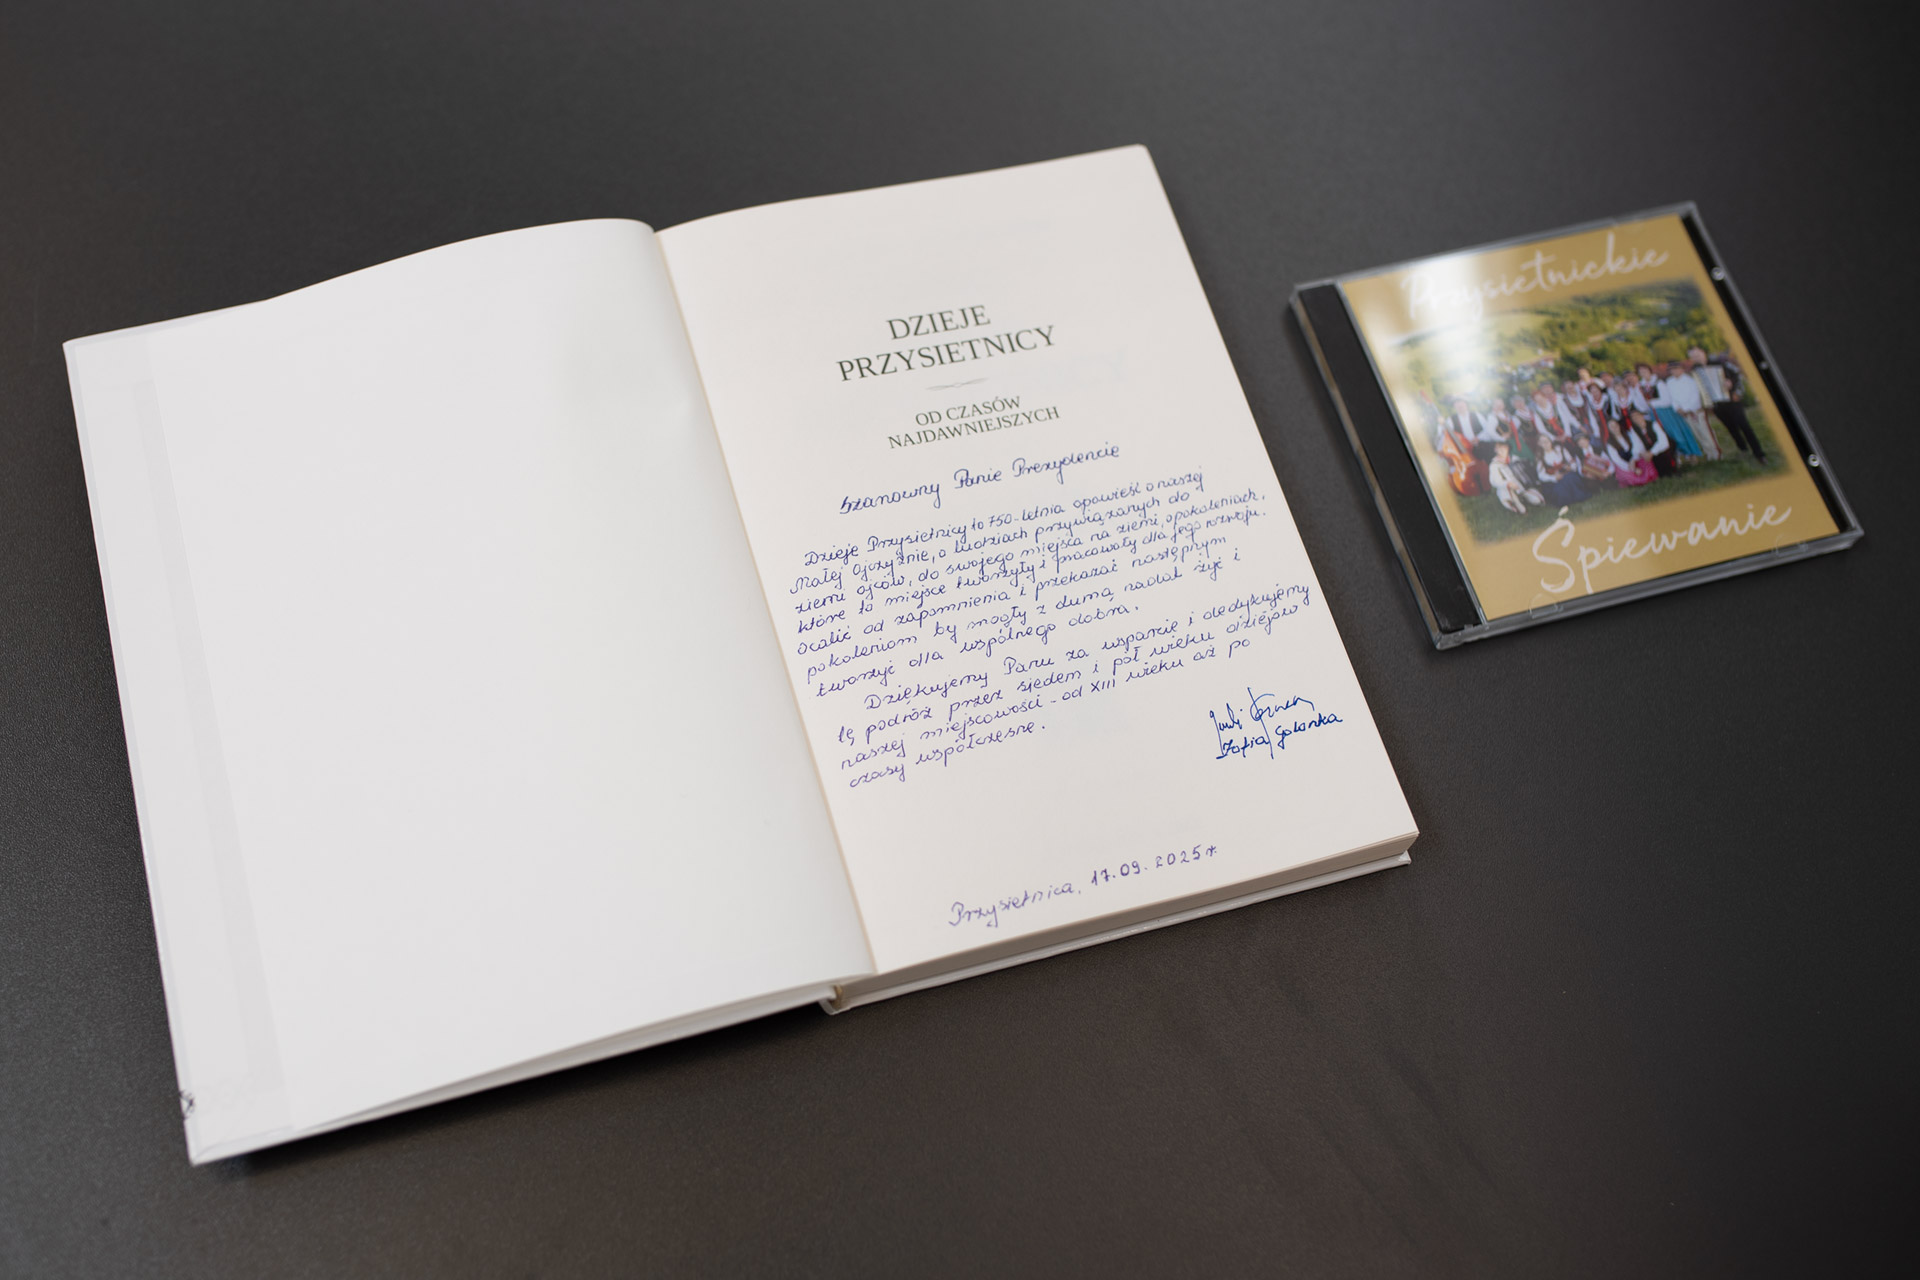 DZIEJE
PRZYSIETNICY
OD CZASÓW
NAJDAWNIEJSZYCH
Szanowny Panie Prezydencie
Dzieje Przysietnicy to 750-letnia opowieść o naszej
Małej Ojczyźnie, o ludziach przywiązanych do
ziemi ojców, do swojego miejsca na ziemi, o pokoleniach,
które to miejsce tworzyły i pracowały dla jego rozwoju.
Ocalić od zapomnienia i przekazać następnym
pokoleniom by mogły z dumą nadal żyć i
tworzyć dla wspólnego dobra.
Dziękujemy Panu za wsparcie i dedykujemy
tę podróż przez siedem i pół wieku dziejów
naszej miejscowości - od XIII wieku aż po
czasy współczesne.
Zofia Golonka
Przysietnica, 17.09.2025 r.
Przysietnickie
Śpiewanie